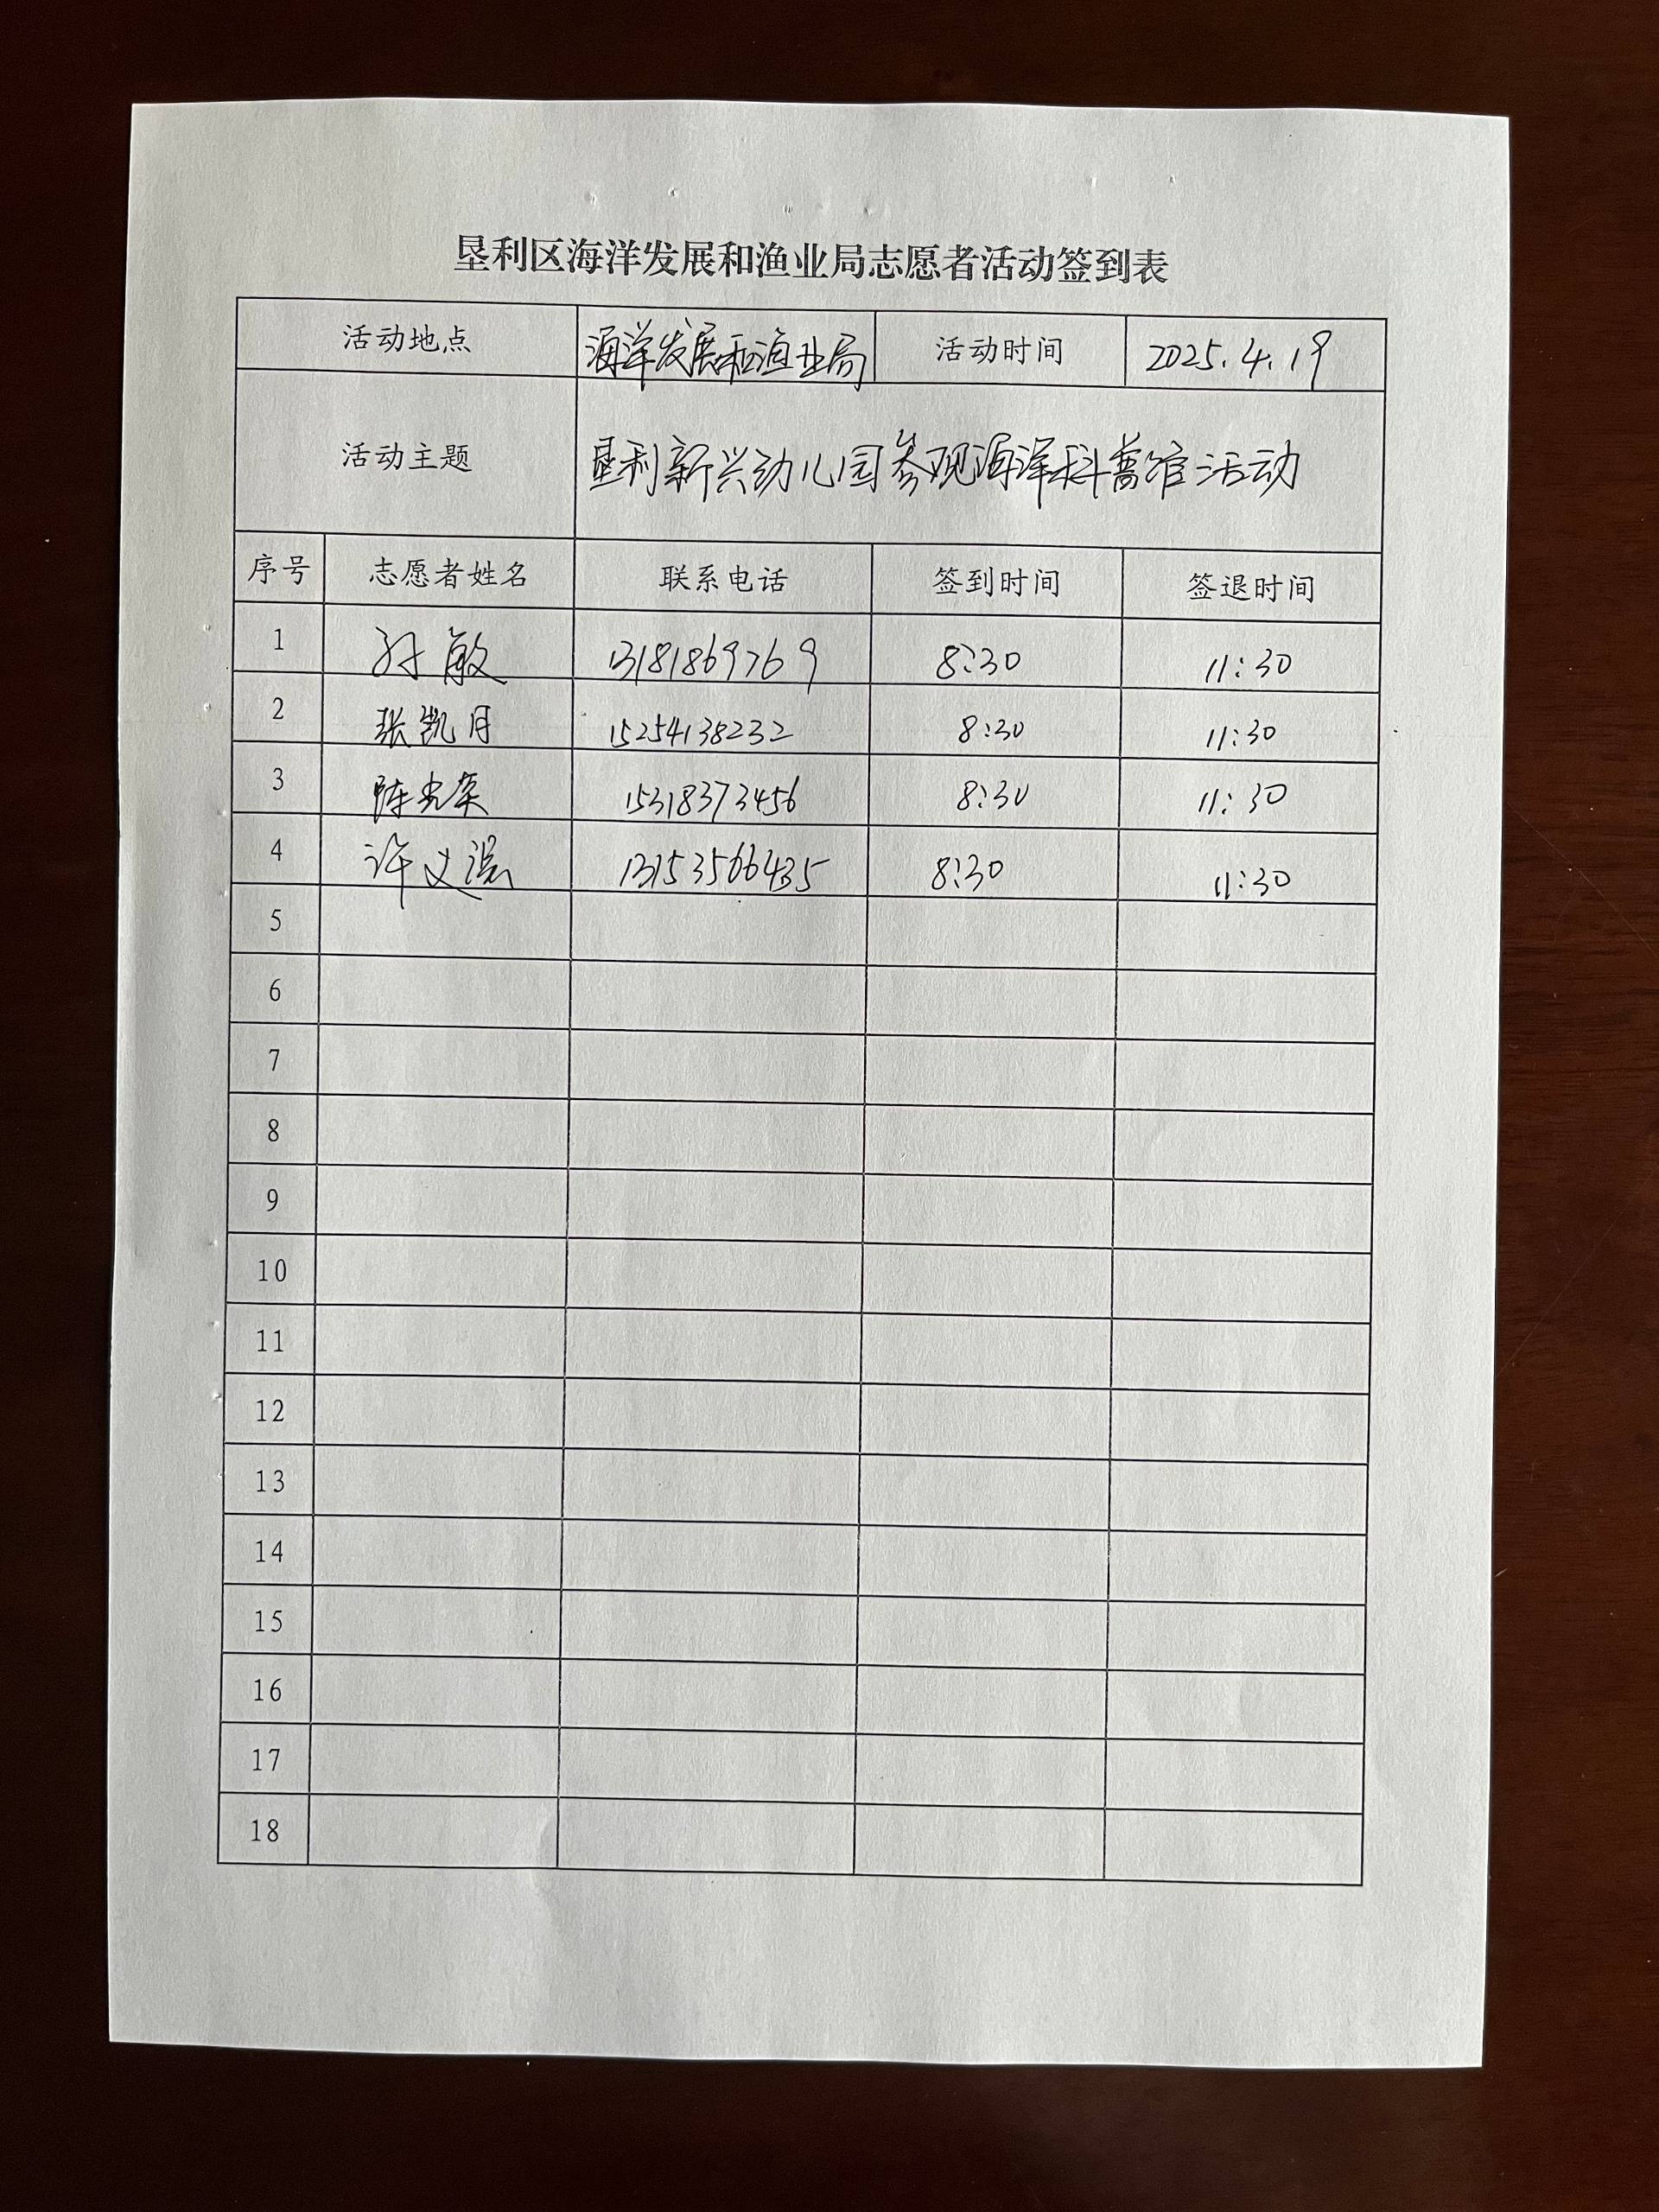 垦利区海洋发展和渔业局志愿者活动签到表
活动地点 海洋发展和渔业局 活动时间 2025.4.19
活动主题 垦利新兴幼儿园参观海洋科普馆活动
序号 志愿者姓名 联系电话 签到时间 签退时间
1 孙敏 13181869769 8:30 11:30
2 张凯月 15254138232 8:30 11:30
3 陈光荣 15318373456 8:30 11:30
4 许义 13153566435 8:30 11:30
5
6
7
8
9
10
11
12
13
14
15
16
17
18